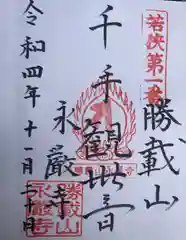 若狭第一番
勝載山
千手観世音
永厳寺
令和四年十一月二十日
勝載山
永厳寺